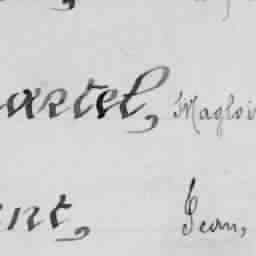 artel, Magloi
nt, Jean,